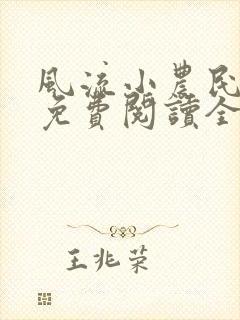 風流小農民
免費閱讀全
王兆榮